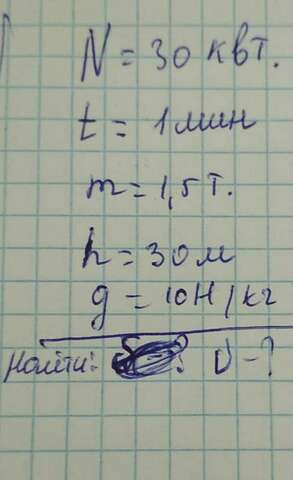 N = 30 квт.
t = 1 мин
m = 1,5 т.
h = 30 м
g = 10 Н/кг
Найти: υ - ?